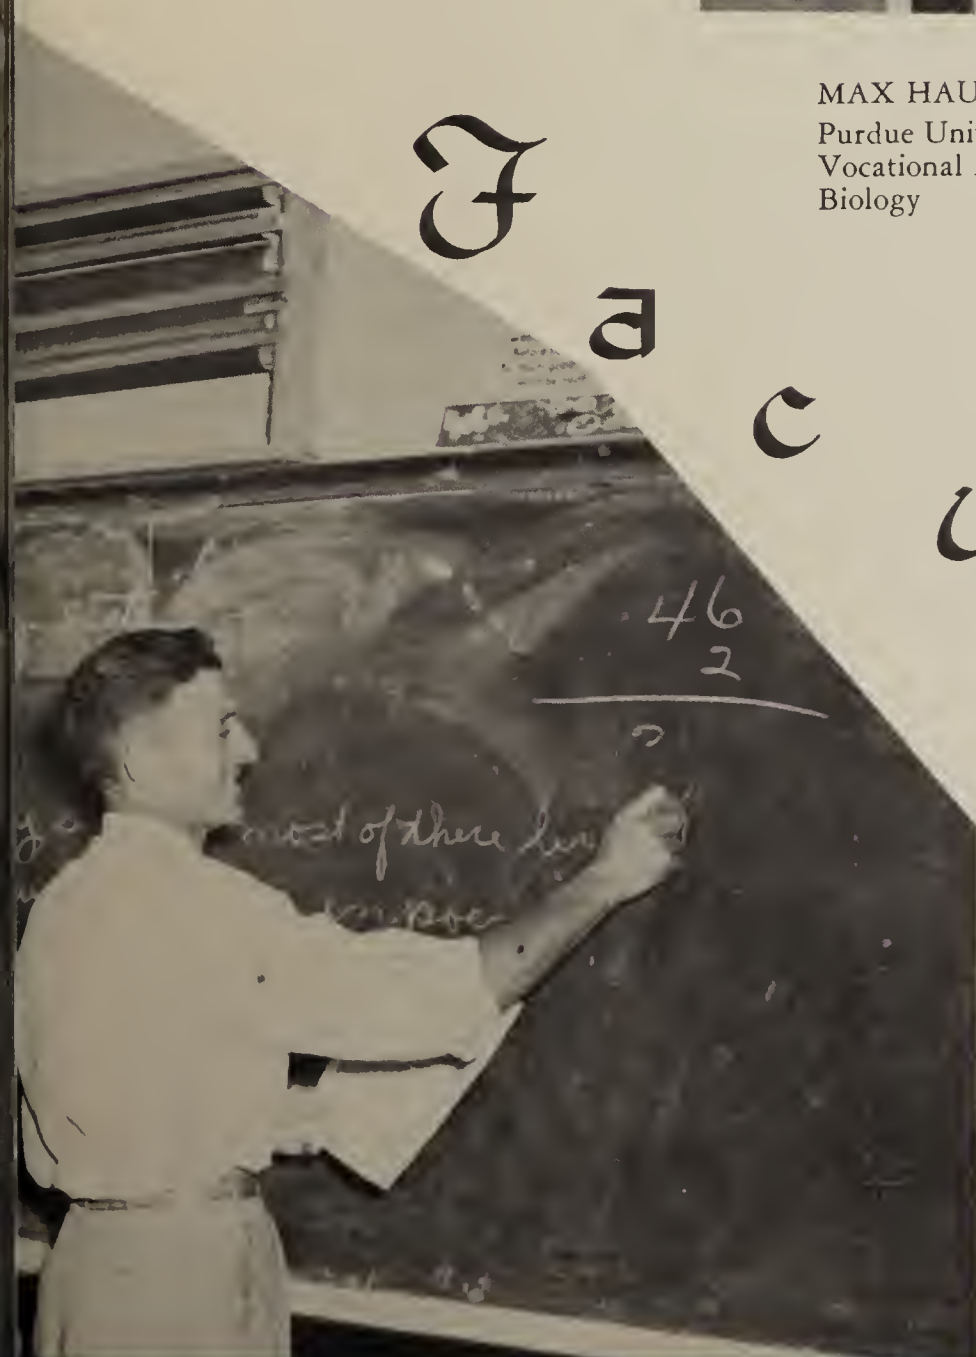 MAX HAU
Purdue Uni
Vocational
Biology
F
a
c
u
.46
2
?
most of there